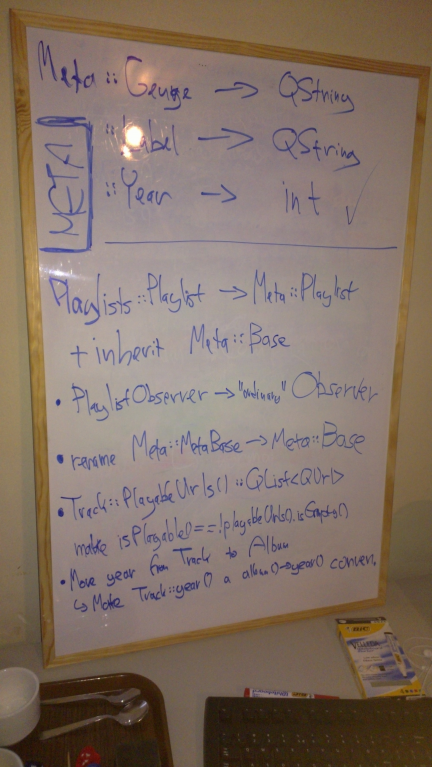 Meta::Genre → QString
::Label → QString
::Year → int ✓
META
Playlists::Playlist → Meta::Playlist
+ inherit Meta::Base
• PlaylistObserver → "ordinary" Observer
• rename Meta::MetaBase → Meta::Base
• Track::PlayableUrls() :: QList<QUrl>
make isPlayable() == !playableUrls().isEmpty()
• Move year from Track to Album
↳ Make Track::year() a album()->year() conven.
BIC